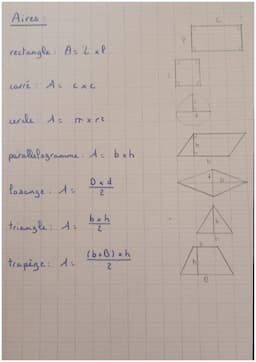 Aires :
rectangle : A = L x l
carré : A = c x c
cercle A = π x r²
parallélogramme : A = b x h
losange : A = D x d / 2
triangle : A = b x h / 2
trapèze : A = (b+B) x h / 2